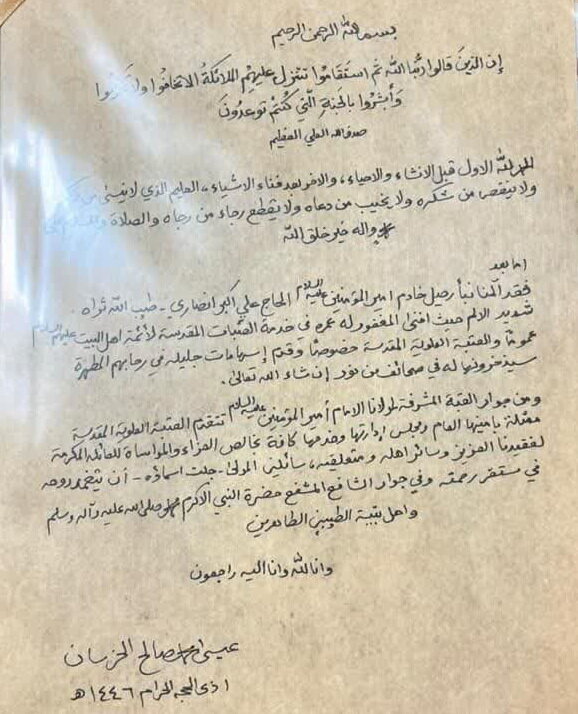 بسم الله الرحمن الرحيم
إن الذين قالوا ربنا الله ثم استقاموا تتنزل عليهم الملائكة الا تخافوا ولا تحزنوا
وأبشروا بالجنة التي كنتم توعدون
صدق الله العلي العظيم
الحمد لله الاول قبل الانشاء والاحياء، والاخر بعد فناء الاشياء، العليم الذي لا ينسى من ذكره
ولا ينقص من شكره ولا يخيب من دعاه ولا يقطع رجاء من رجاه والصلاة والسلام على
محمد واله خير خلق الله
اما بعد
فقد المنا نبأ رحيل خادم امير المؤمنين عليه السلام الحاج علي اكبر انصاري - طيب الله ثراه -
شديد الالم حيث افنى المغفور له عمره في خدمة العتبات المقدسة لأئمة اهل البيت عليهم السلام
عموما والعتبة العلوية المقدسة خصوصا وقدم إسهامات جليله في رحابهم المطهرة
سيذخرونها له في صحائف من نور إن شاء الله تعالى.
ومن جوار القبة المشرفة لمولانا الامام أمير المؤمنين عليه السلام تتقدم العتبة العلوية المقدسة
ممثلة بامينها العام ومجلس إدارتها وخدمها كافة بخالص العزاء والمواساة للعائلة المكرمة
لفقيدنا العزيز وسائر اهله ومتعلقيه، سائلين المولى - جلت اسماؤه - أن تتغمد روحه
في مستقر رحمته وفي جوار الشافع المشفع حضرة النبي الاكرم محمد صلى الله عليه وآله وسلم
واهل بيته الطيبين الطاهرين
وانا لله وانا اليه راجعون
عيسى احمد صالح الخرسان
١ ذي الحجه الحرام ١٤٤٦ هـ